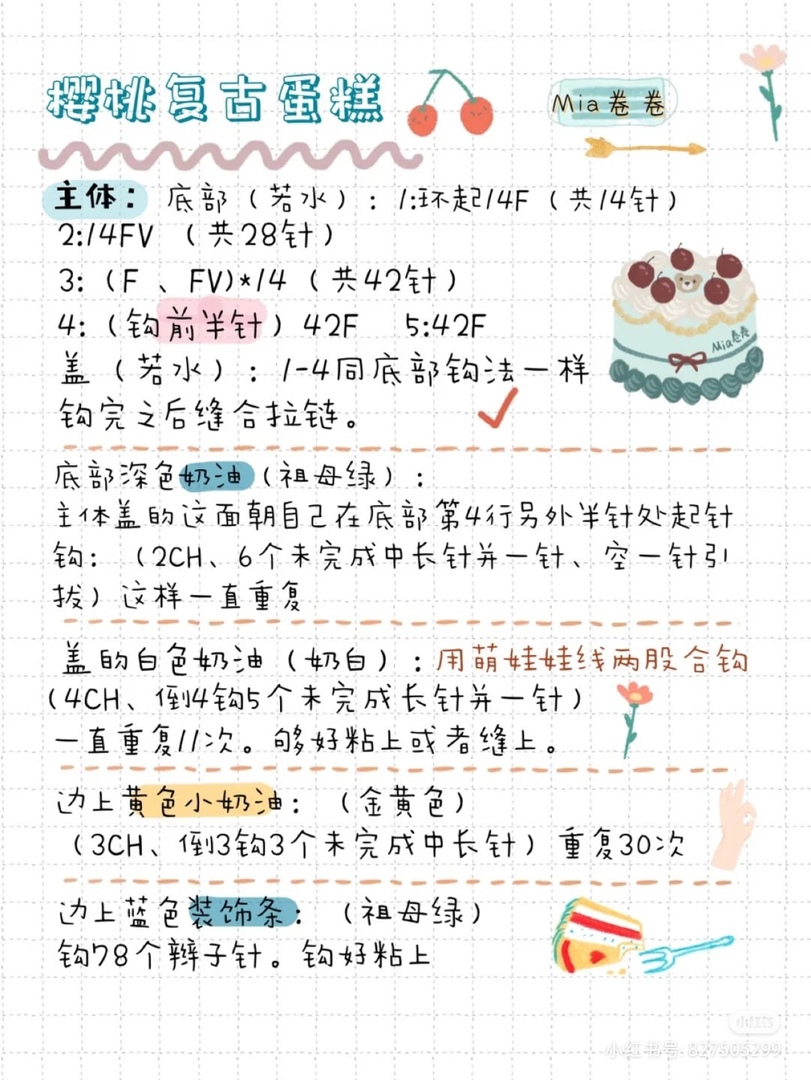 樱桃复古蛋糕
Mia卷卷
主体：底部（若水）：1:环起14F（共14针）
2:14FV （共28针）
3:（F 、FV)*14（共42针）
4:（钩前半针）42F 5:42F
盖（若水）：1-4同底部钩法一样
钩完之后缝合拉链。
Mia卷卷
底部深色奶油（祖母绿）：
主体盖的这面朝自己在底部第4行另外半针处起针
钩：（2CH、6个未完成中长针并一针、空一针引
拔）这样一直重复
盖的白色奶油（奶白）：用萌娃娃线两股合钩
（4CH、倒4钩5个未完成长针并一针）
一直重复11次。够好粘上或者缝上。
边上黄色小奶油：（金黄色）
（3CH、倒3钩3个未完成中长针）重复30次
边上蓝色装饰条：（祖母绿）
钩78个辫子针。钩好粘上
小红书
小红书号:827505299